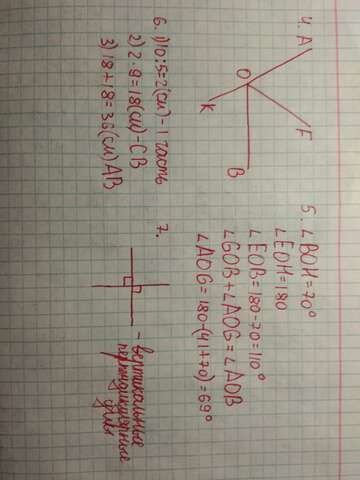 4. A
O
F
K
B
5. ∠BOH=70°
∠EOH=180
∠EOB=180-70=110°
∠GOB+∠AOG=∠AOB
∠AOG=180-(41+70)=69°
6. 1) 10:5=2(см)-1 часть
2) 2·9=18(см)-CB
3) 18+18=36(см)AB
7.
- вертикальные
перпендикулярные
углы